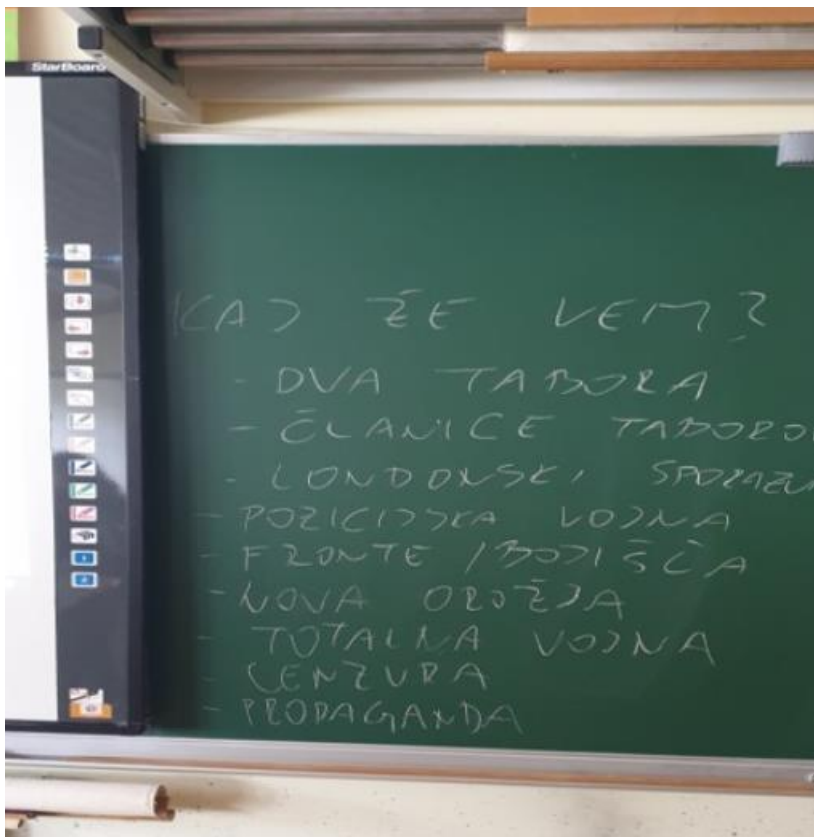 StarBoard
KAJ ŽE VEM?
- DVA TABORA
- ČLANICE TABORO
- LONDONSKI SPORAZU
- POZICIJSKA VOJNA
- FRONTE / BOJIŠČA
- NOVA OROŽJA
- TOTALNA VOJNA
- CENZURA
- PROPAGANDA